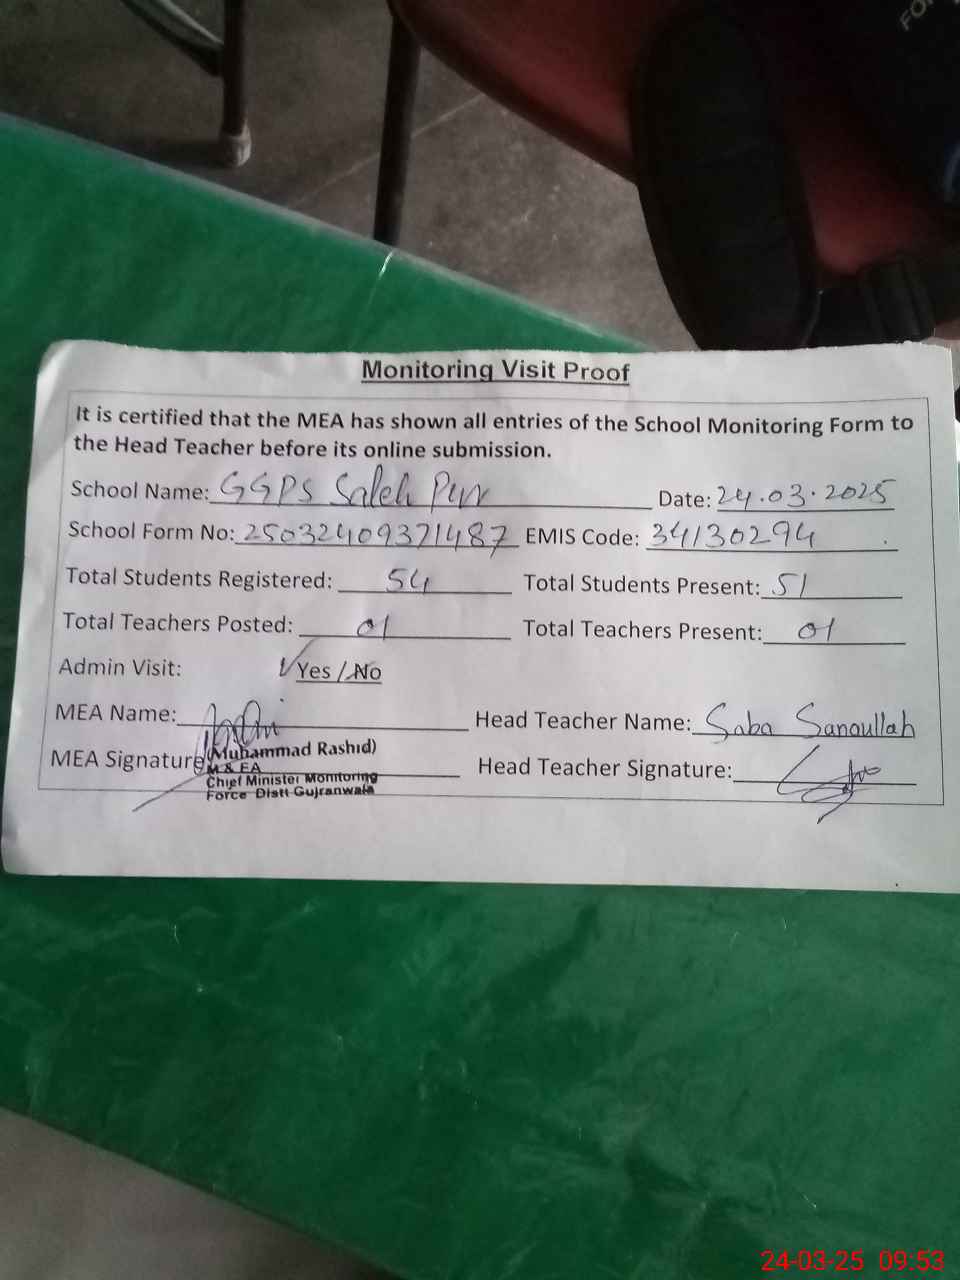 FO
Monitoring Visit Proof
It is certified that the MEA has shown all entries of the School Monitoring Form to
the Head Teacher before its online submission.
School Name: GGPS Saleh Pur Date: 24.03.2025
School Form No: 25032409371487 EMIS Code: 34130294
Total Students Registered: 54 Total Students Present: 51
Total Teachers Posted: 01 Total Teachers Present: 01
Admin Visit: Yes / No
MEA Name: Head Teacher Name: Saba Sanaullah
MEA Signature Head Teacher Signature:
(Muhammad Rashid)
M & EA
Chief Minister Monitoring
Force Distt Gujranwala
24-03-25 09:53